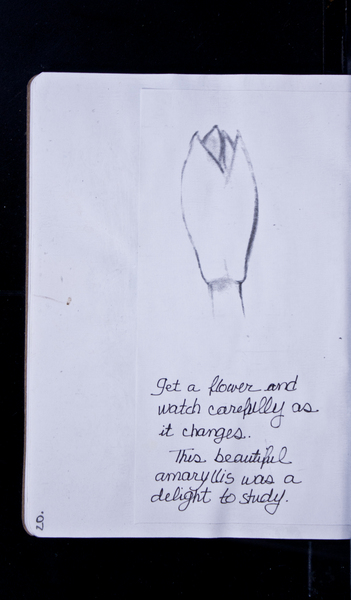 Get a flower and
watch carefully as
it changes..
This beautiful
amaryllis was a
delight to study.
20.